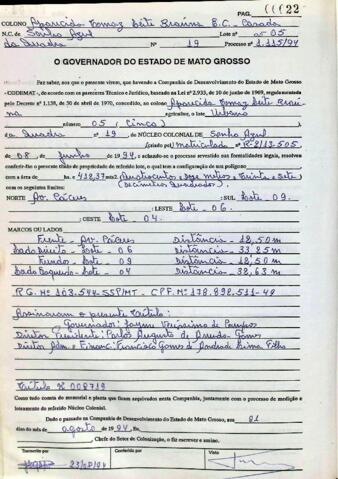 PAG. 22
COLONO Aparecido Tomaz Sete Brauna B.C. - Casada
N.C. de Sonho Azul Lote nº 05
da Quadra Nº 19 Processo nº 1.115/94
O GOVERNADOR DO ESTADO DE MATO GROSSO
Faz saber, aos que o presente virem, que havendo a Companhia de Desenvolvimento do Estado de Mato Grosso
- CODEMAT -, de acordo com os pareceres Técnico e Jurídico, baseado na Lei nº 2.933, de 10 de junho de 1969, regulamentada
pelo Decreto nº 1.138, de 30 de abril de 1970, concedido, ao colono Aparecido Tomaz Sete Brau
na agricultor, o lote Urbano
número 05 (Cinco)
da Quadra nº 19, DE NÚCLEO COLONIAL DE Sonho Azul
matriculada Nº R-2/13.505
de 08 de Junho de 1994, e achando-se o processo revestido das formalidades legais, resolveu
conferir-lhe o presente título de propriedade do referido lote, o qual tem a configuração de um polígono
com a área de ha. e 412,37 m² (Quatrocentos e doze metros e trinta e sete)
(Decímetros Quadrados).
com os seguintes limites:
NORTE Av. Cáceres ; SUL Lote 09.
; LESTE Lote - 06
; OESTE Lote - 04.
MARCOS OU LADOS
Frente - Av. Cáceres Distância - 12,50 m
Lado Direito - Lote - 06 Distância - 33,85 m
Fundos - Lote - 09 Distância - 12,50 m
Lado Esquerdo - Lote - 04 Distância - 32,63 m
R.G. Nº 103.544-SSP/MT - C.P.F. Nº 178.898.511-49
Assinaram o presente Título:
Governador: Jayme Veríssimo de Campos
Diretor Presidente: Carlos Augusto de Arruda Gomes
Diretor Adm. e Financ.: Francisco Gomes de Andrade Lima Filho
Título Nº 008719
Como tudo consta do memorial e planta que ficam arquivados nesta Companhia, juntamente com o processo de medição e
loteamento do referido Núcleo Colonial.
Dado e passado na Companhia de Desenvolvimento do Estado de Mato Grosso, em 01
dias do mês de agosto de 1994. Eu,
Chefe do Setor de Colonização, o fiz escrever e assino.
Transcrito por
Conferido por
Visto